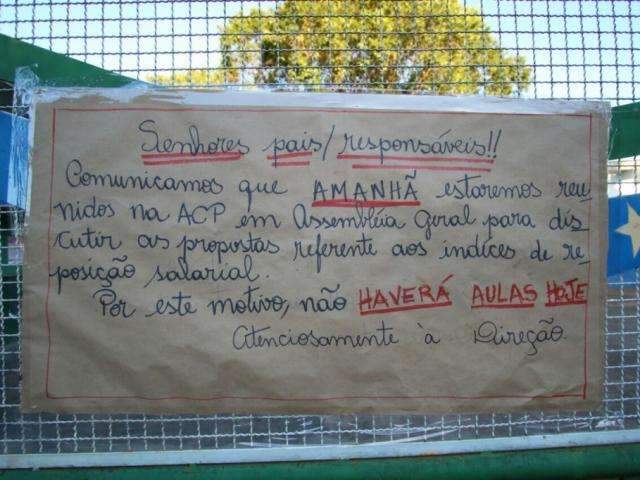 Senhores pais/responsáveis!!
Comunicamos que AMANHÃ estaremos reu
nidos na ACP em Assembléia Geral para dis_
cutir as propostas referente aos indices de re_
posição salarial.
Por este motivo, não HAVERÁ AULAS HOJE
Atenciosamente à Direção.